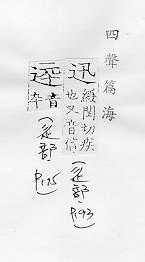 四聲篇海
迅
綏閏切疾
也又音信
(辵部, P.193)
音
卒
(辵部 P.175)